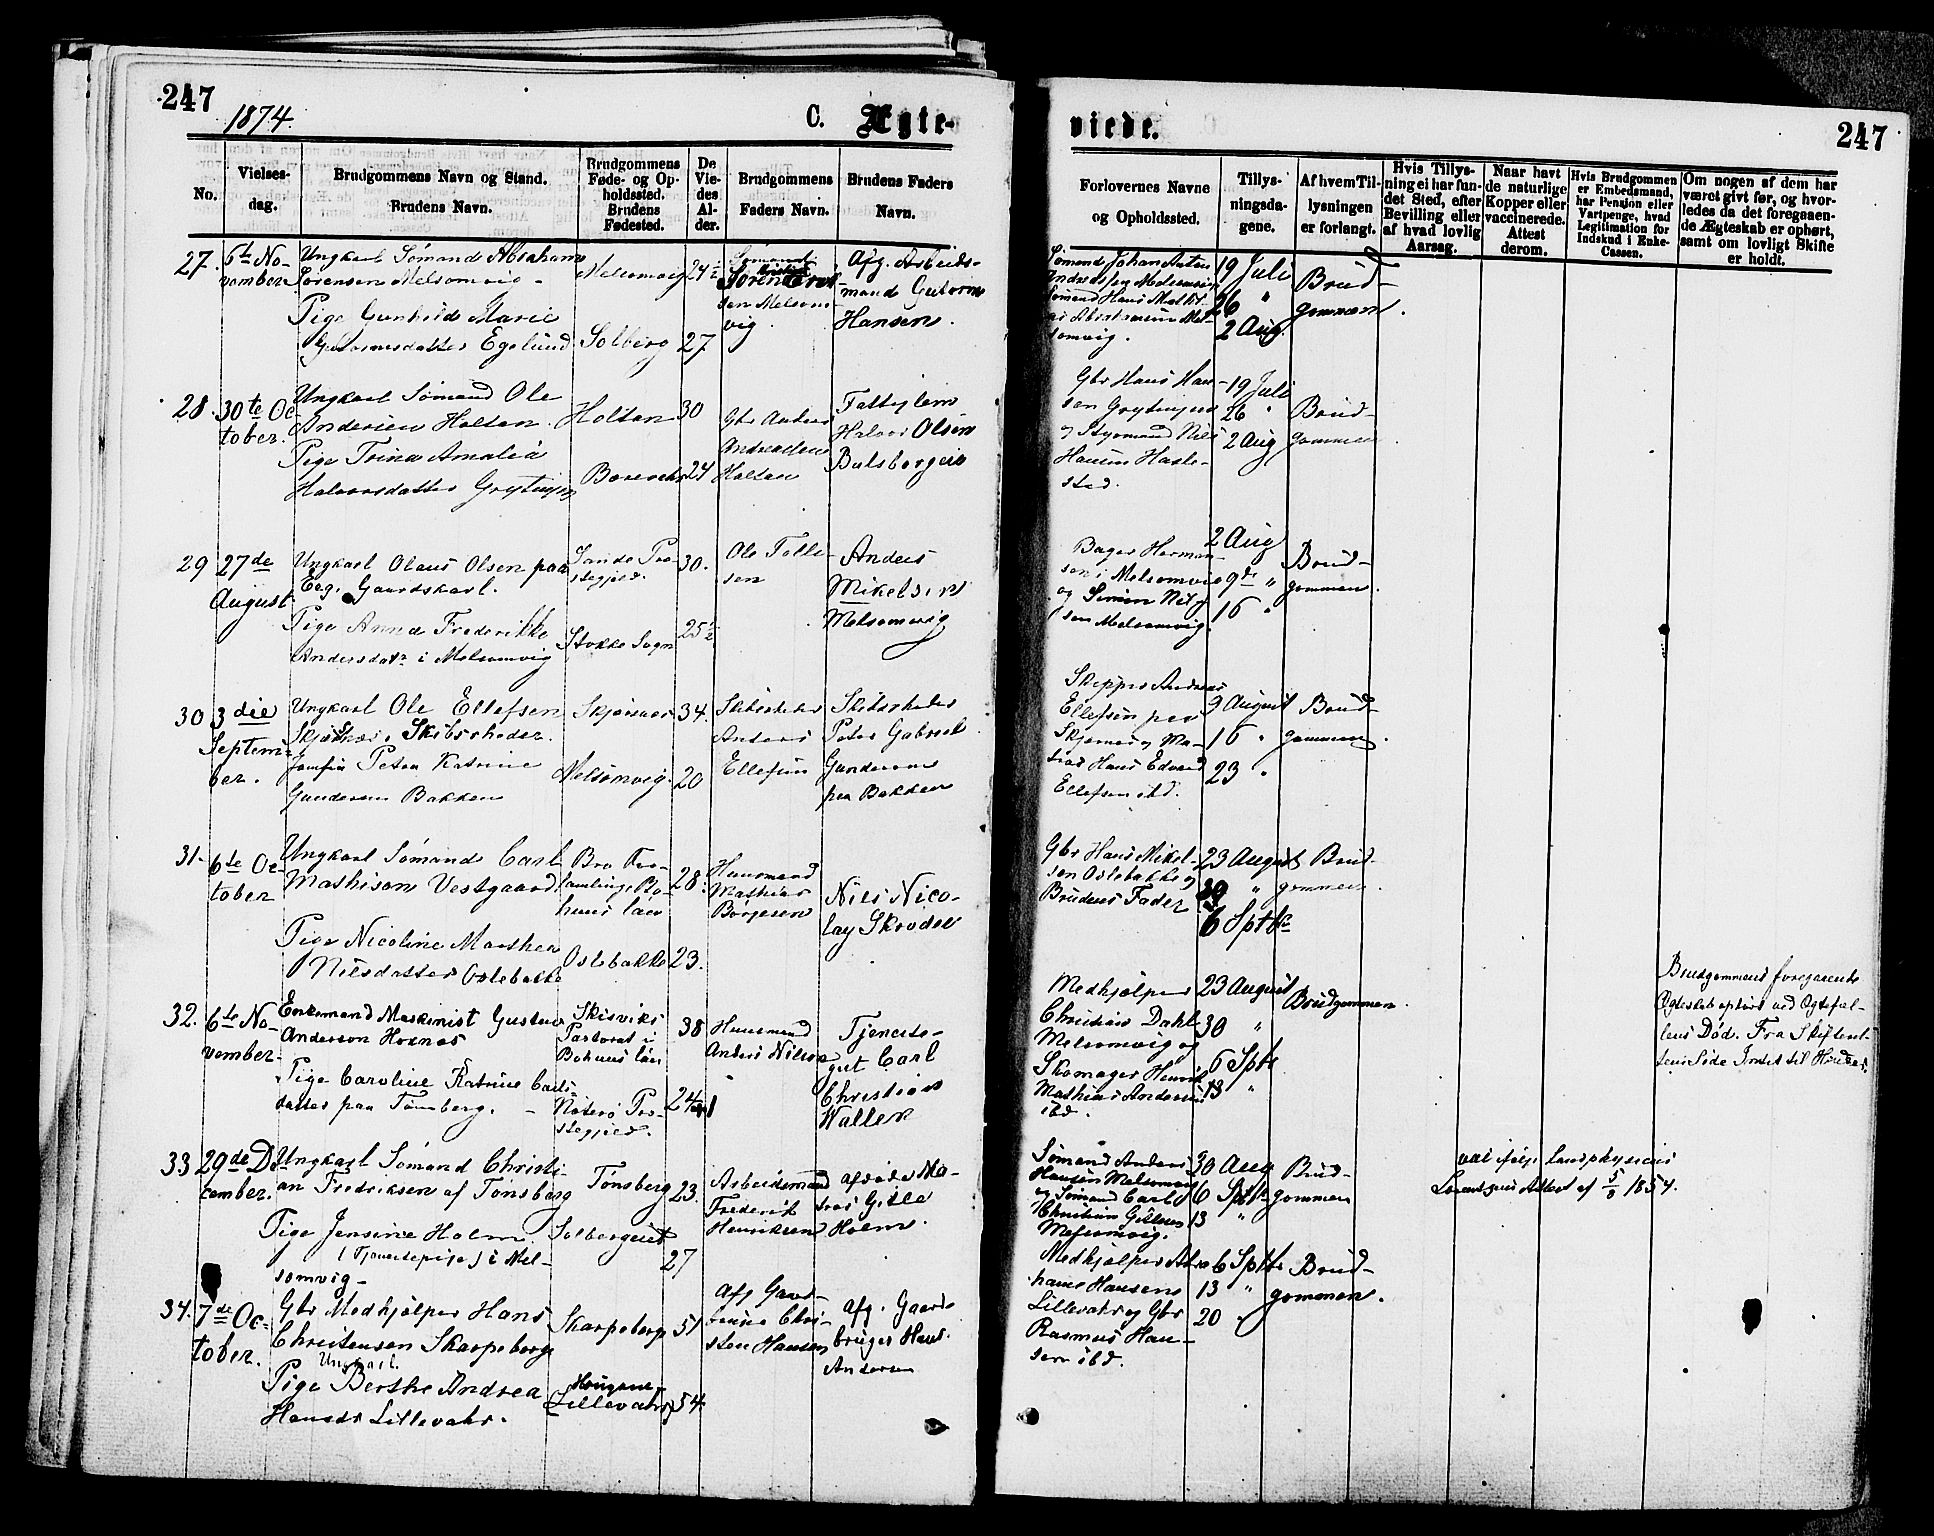 247
1874.
C. Ægte-
viede.
247
No.
Vielses-
dag.
Brudgommens Navn og Stand.
Brudens Navn.
Brudgommens
Føde- og Op-
holdssted.
Brudens
Fødested.
De
Vie-
des
Al-
der.
Brudgommens
Faders Navn.
Brudens Faders
Navn.
Forlovernes Navne
og Opholdssted.
Tillys-
ningsda-
gene.
Af hvem Til-
lysningen
er forlangt.
Hvis Tillys-
ning ei har fun-
det Sted, efter
Bevilling eller
af hvad lovlig
Aarsag.
Naar havt
de naturlige
Kopper eller
vaccinerede.
Attest
derom.
Hvis Brudgommen
er Embedsmand,
har Pension eller
Vartpenge, hvad
Legitimation for
Indskud i Enke-
Cassen.
Om nogen af dem har
været givt før, og hvor-
ledes da det foregaaen-
de Ægteskab er ophørt,
samt om lovligt Skifte
er holdt.
27.
6te No-
vember.
Ungkarl Sømand Abraham
Sørensen Melsomvig
Pige Gunhild Marie
Guttormsdatter Egelund
Melsomvig
Solberg
24½
27
Sømand
Søren
sen Melsom-
vig.
Afg. Arbeids-
mand Gutorm
Hansen.
Sømand Johan Anton
Andreassen Melsomvig
Sømand Hans
Abrahamsen Mel-
somvig.
19 Juli
26 "
2 Aug.
Brud-
gommen.
28.
30te Oc-
tober.
Ungkarl Sømand Ole
Andersen Holtan.
Pige Trine Amalia
Halvorsdatter
Holtan
30
24
Gbr Anders
Andreassen
Holtan
Fattiglem
Halvor Olsen
Gbr Hans Han-
sen
og Styrmand Nils
Hansen Hasle-
stad.
19 Juli
26 "
2 Aug
Brud-
gommen
29
27de
August
Ungkarl Olaus Olsen paa
Gaardskarl.
Pige Anna Frederikke
Andersdatr i Melsomvig
Sande Præ-
stegjeld.
Stokke Sogn
30.
25½
Ole Tolle-
sen
Anders
Mikelsen
Melsomvig
Bager Herman-
sen i Melsomvig
og Simon Nil-
sen Melsomvig.
2 Aug
9de "
16 "
Brud-
gommen.
30
3die
Septem-
ber.
Ungkarl Ole Ellefsen
Skibsrheder.
Jomfru Petra Katrine
Gundersen Bakken
Melsomvig.
34.
20
Skibsrheder
Anders
Ellefsen
Skibsrheder
Peter Gabriel
Gundersen
paa Bakken
Skipper Andreas
Ellefsen paa
og Ma-
tros Hans Edvard
Ellefsen ibd.
9 August
16 "
23 "
Brud-
gommen.
31.
6te Oc-
tober
Ungkarl Sømand Carl
Mathisen Vestgaard.
Pige Nicoline Marthea
Nilsdatter Oslebakke
Bro For-
samling Bo-
huus län
Oslebakke
28.
23.
Huusmand
Mathias
Börjesen
Nils Nico-
lay Skrodel
Gbr Hans Mikel-
sen Oslebakke og
Brudens Fader
23 August
30 "
6 Sptbr
Brud-
gommen.
32.
6te No-
vember.
Enkemand Maskinist Gustav
Anderson Hornæs
Pige Caroline Katrine Carls-
datter paa Tønsberg.
Skisviks
Pastorat i
Bohuus län
Nøterø Præ-
stegjeld.
38
24
Huusmand
Anders Nilsen
Tjeneste-
gut Carl
Christian
Waller
Medhjælper
Christian Dahl
Melsomvig og
Skomager Henrik
Mathias Andersen
ibd.
23 August
30 "
6 Sptb
13 "
Brudgommen.
Brudgommens foregaaende
Ægteskab ophört ved Ægtefæl-
lens Död. Fra Skifteret-
tens Side Intet til Hinder.
33
29de De-
cember.
Ungkarl Sømand Christi-
an Fredriksen af Tønsberg
Pige Jensine Holm
(Tjenestepige) i Mel-
somvig-
Tønsberg
Solbergeiet
23.
27
Arbeidsmand
Frederik
Henriksen
afdøde Ma-
tros Gille
Holm.
Sømand Anders
Hansen Melsomvig
og Sømand Carl
Christian Gillesen
Melsomvig.
30 Aug
6 Sptbr
13 "
Brud-
gommen
vac ifølge Landphysicus
Attest af 5/8 1854.
34.
7de Oc-
tober.
Gbr Medhjælper Hans
Christensen Skarpeberg
Ungkarl.
Pige Berthe Andrea
Hansdr Lillevahr.
Skarpeberg
Haugane
Lillevahr
51
54.
Afg Gaard-
bruger Chri-
sten Hansen
afg. Gaard-
bruger Hans
Andersen
Medhjælper Abra-
ham Hansen
Lillevahr og Gbr
Rasmus Han-
sen ibd.
6 Sptbr
13 "
20 "
Brud-
gommen.